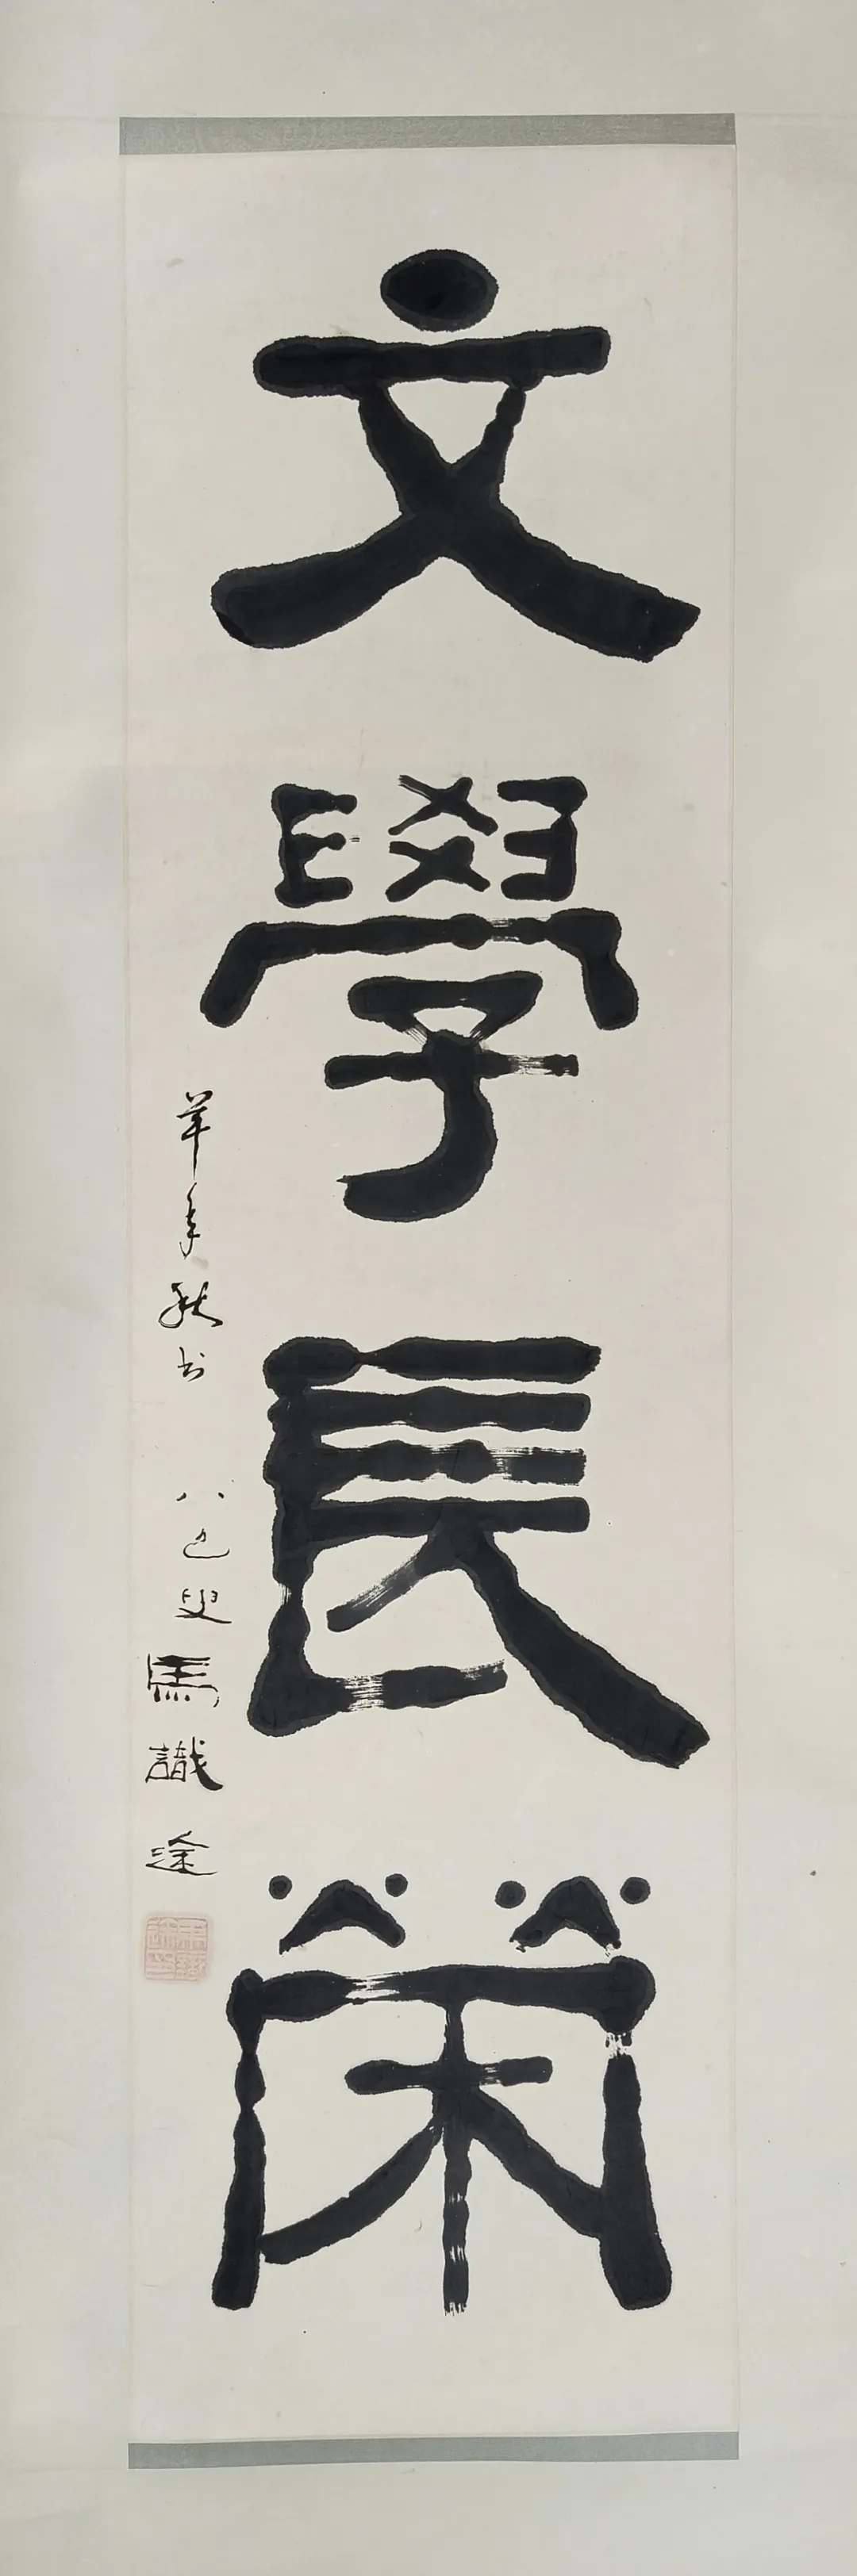 文學長榮
羊年秋书
八乙叟馬識途